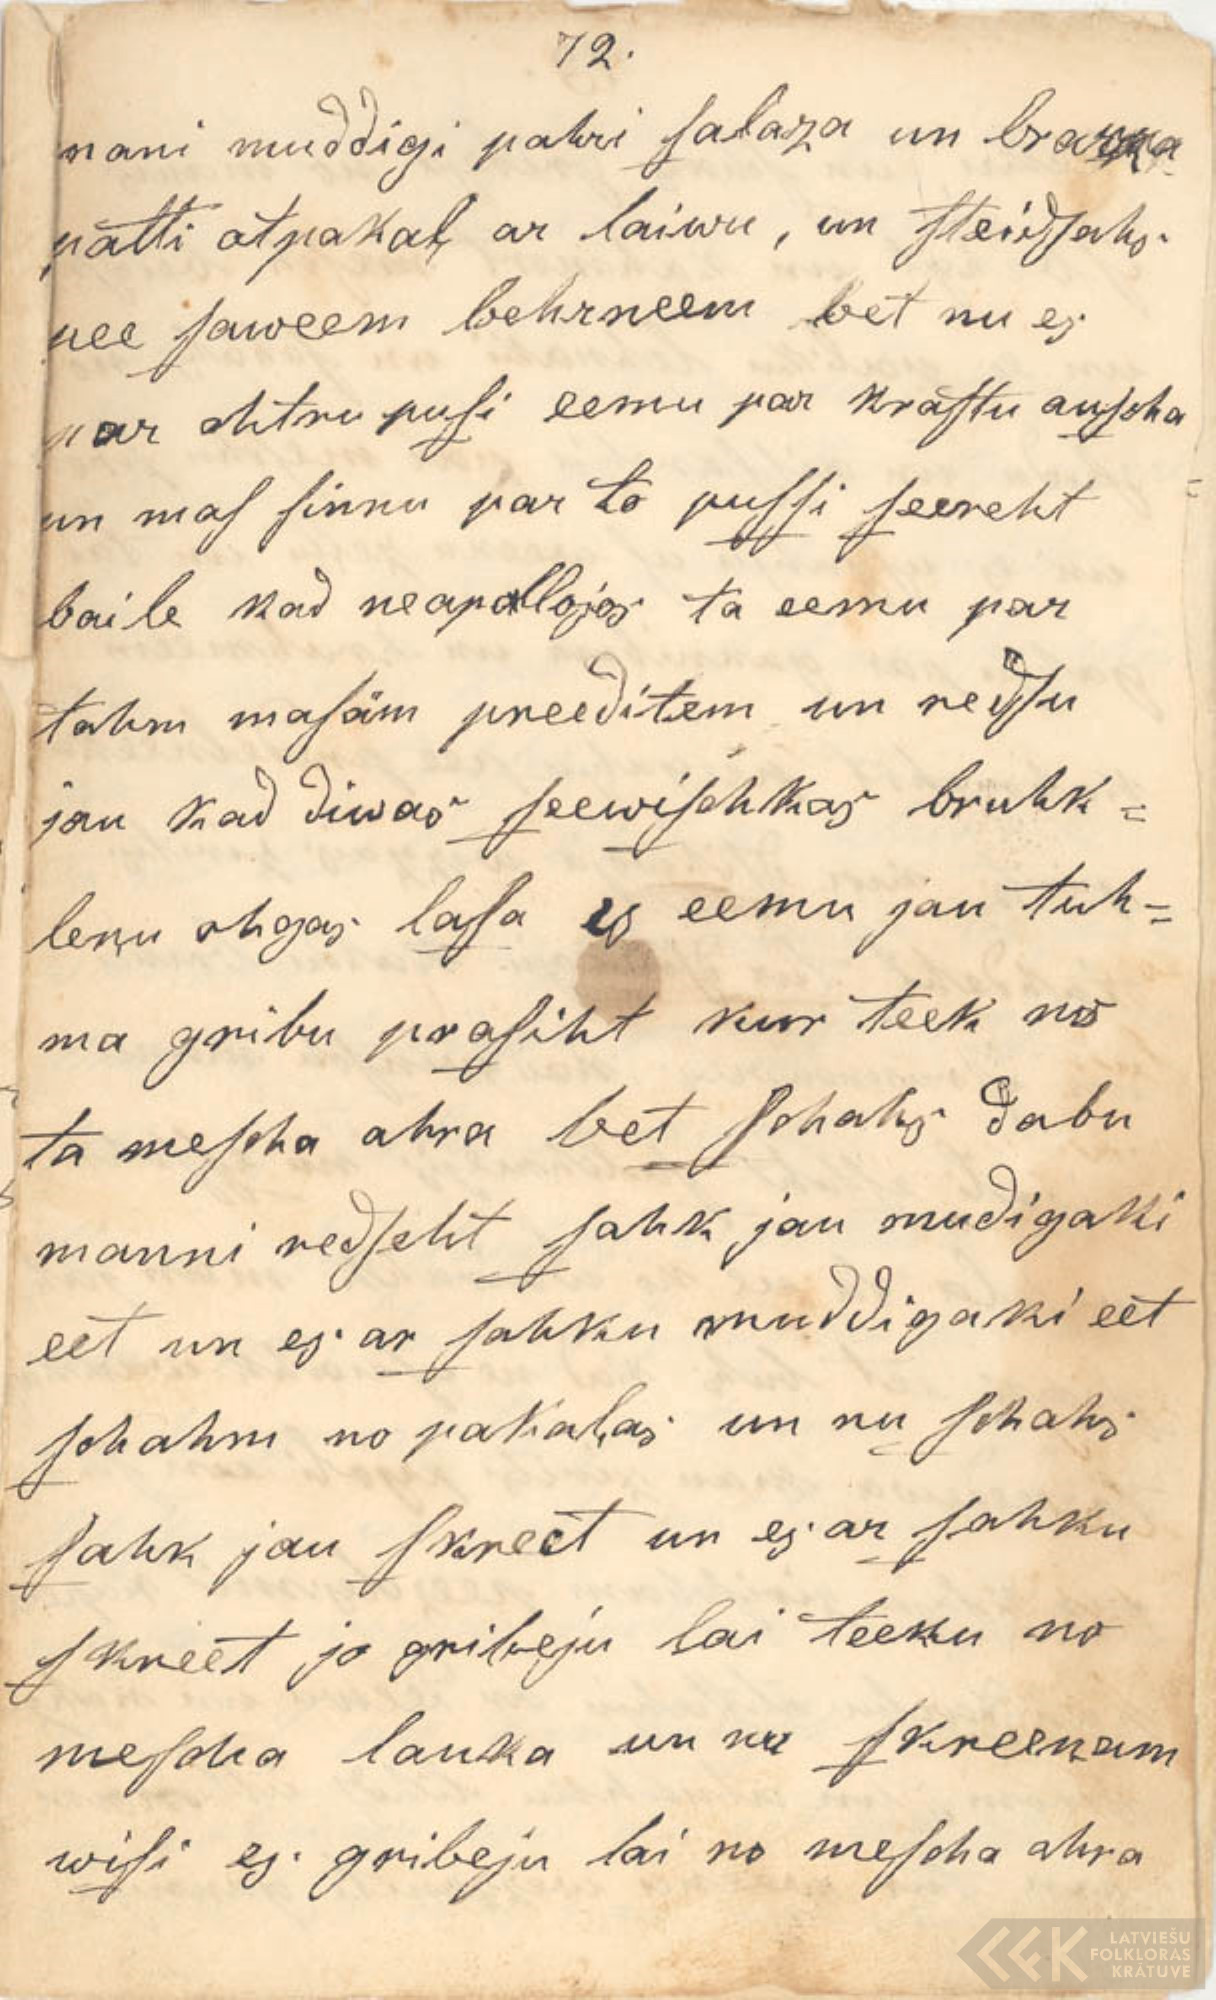 72.
nani muddigi pahri ſalaza un brauza
patti atpakaļ ar laiwu, un ſteidſahs
pee ſaweem behrneem bet nu es
par ohtru puſi eemu par kraſtu auſcha
un maſ ſinnu par to puſſi ſeereht
baile kad neapallojos ta eemu par
tahm maſäm preeditem un redſu
jau kad diwas ſeewiſchkas bruhk=
leņu ohgas laſa es eemu jau tuh=
ma gribu praſiht kur teek nos
ta meſcha ahra bet ſchahs dabu
manni redſeht ſahk jau mudigaki
eet un es ar ſahku muddigaki eet
ſchahm no pakaļas un nu ſchahs
ſahk jau ſkreet un es ar ſahku
ſkreet jo gribeju lai teeku no
meſcha lauka un nu ſkreenam
wiſi es gribeju lai no meſcha ahra
LATVIEŠU
FOLKLORAS
KRĀTUVE